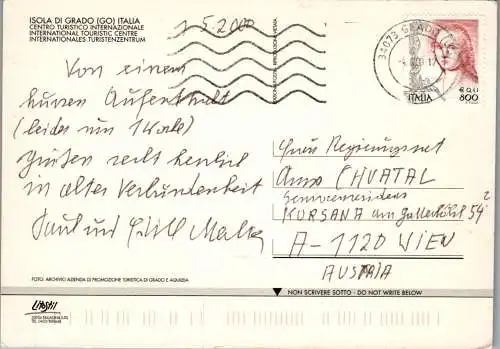 ISOLA DI GRADO (GO) ITALIA
CENTRO TURISTICO INTERNAZIONALE
INTERNATIONAL TOURISTIC CENTRE
INTERNATIONALES TURISTENZENTRUM
1.5.2000
34073 GRADO
ITALIA
800
Von einem
kurzen Aufenthalt
(leider nur 1 Woche)
grüßen recht herzlich
in alter Verbundenheit
Paul und
Frau Regierungsrat
Anna CHVATAL
Seniorenresidenz
KURSANA am
A-1120 WIEN
AUSTRIA
FOTO: ARCHIVIO AZIENDA DI PROMOZIONE TURISTICA DI GRADO E AQUILEIA
NON SCRIVERE SOTTO - DO NOT WRITE BELOW